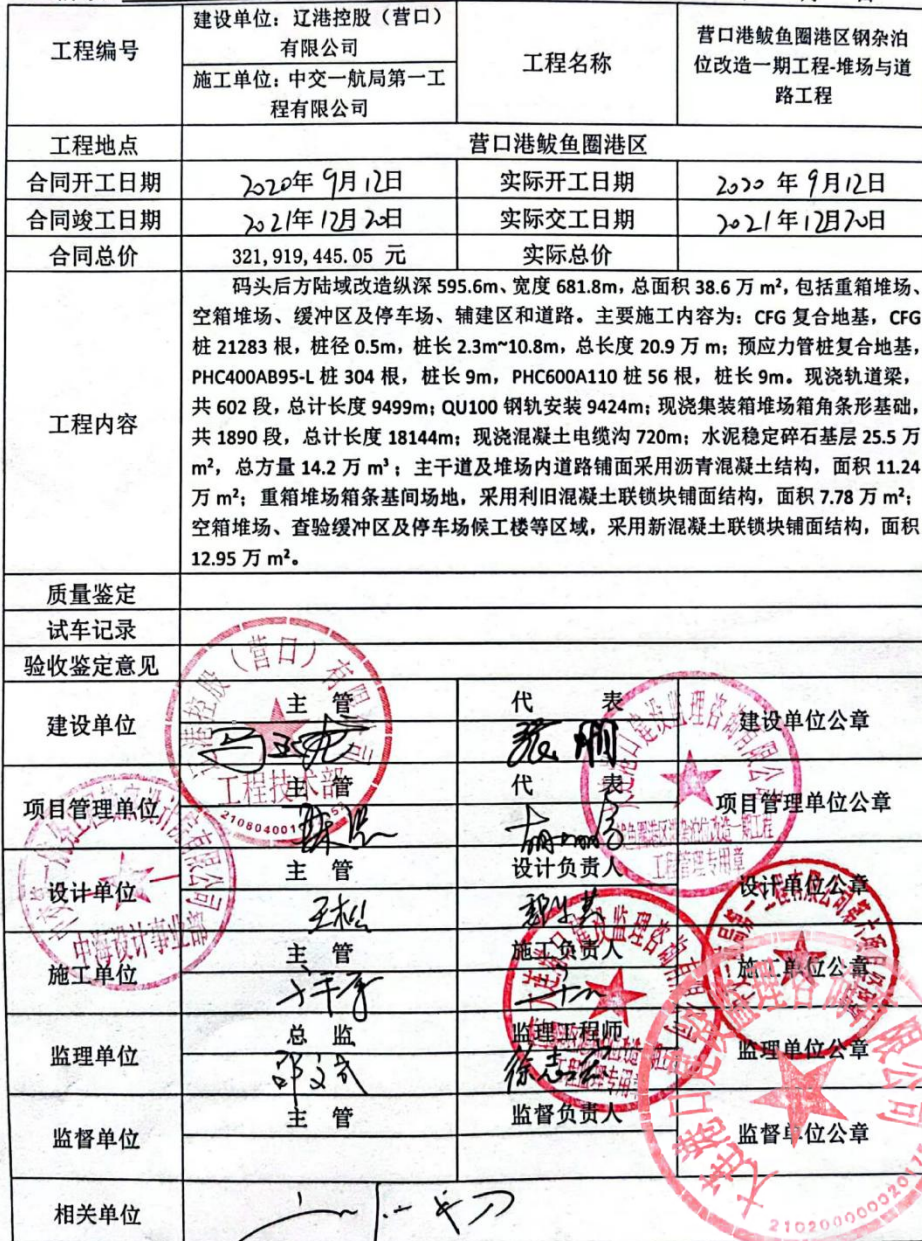 建设单位：辽港控股（营口）
有限公司
工程编号
施工单位：中交一航局第一工
程有限公司
工程名称
营口港鲅鱼圈港区钢杂泊
位改造一期工程-堆场与道
路工程
工程地点 营口港鲅鱼圈港区
合同开工日期 2020年9月12日 实际开工日期 2020年9月12日
合同竣工日期 2021年12月20日 实际交工日期 2021年12月20日
合同总价 321,919,445.05 元 实际总价
工程内容
码头后方陆域改造纵深 595.6m、宽度 681.8m，总面积 38.6 万 m²，包括重箱堆场、
空箱堆场、缓冲区及停车场、辅建区和道路。主要施工内容为：CFG 复合地基，CFG
桩 21283 根，桩径 0.5m，桩长 2.3m~10.8m，总长度 20.9 万 m；预应力管桩复合地基，
PHC400AB95-L 桩 304 根，桩长 9m，PHC600A110 桩 56 根，桩长 9m。现浇轨道梁，
共 602 段，总计长度 9499m；QU100 钢轨安装 9424m；现浇集装箱堆场箱角条形基础，
共 1890 段，总计长度 18144m；现浇混凝土电缆沟 720m；水泥稳定碎石基层 25.5 万
m²，总方量 14.2 万 m³；主干道及堆场内道路铺面采用沥青混凝土结构，面积 11.24
万 m²；重箱堆场箱条基间场地，采用利旧混凝土联锁块铺面结构，面积 7.78 万 m²；
空箱堆场、查验缓冲区及停车场候工楼等区域，采用新混凝土联锁块铺面结构，面积
12.95 万 m²。
质量鉴定
试车记录
验收鉴定意见
建设单位 主 管 代 表 建设单位公章
工程技术部
项目管理单位 主 管 代 表 项目管理单位公章
工程管理专用章
设计单位 主 管 设计负责人 设计单位公章
王松
中海设计事业部
施工单位 主 管 施工负责人 施工单位公章
监理单位 总 监 监理工程师 监理单位公章
监督单位 主 管 监督负责人 监督单位公章
相关单位